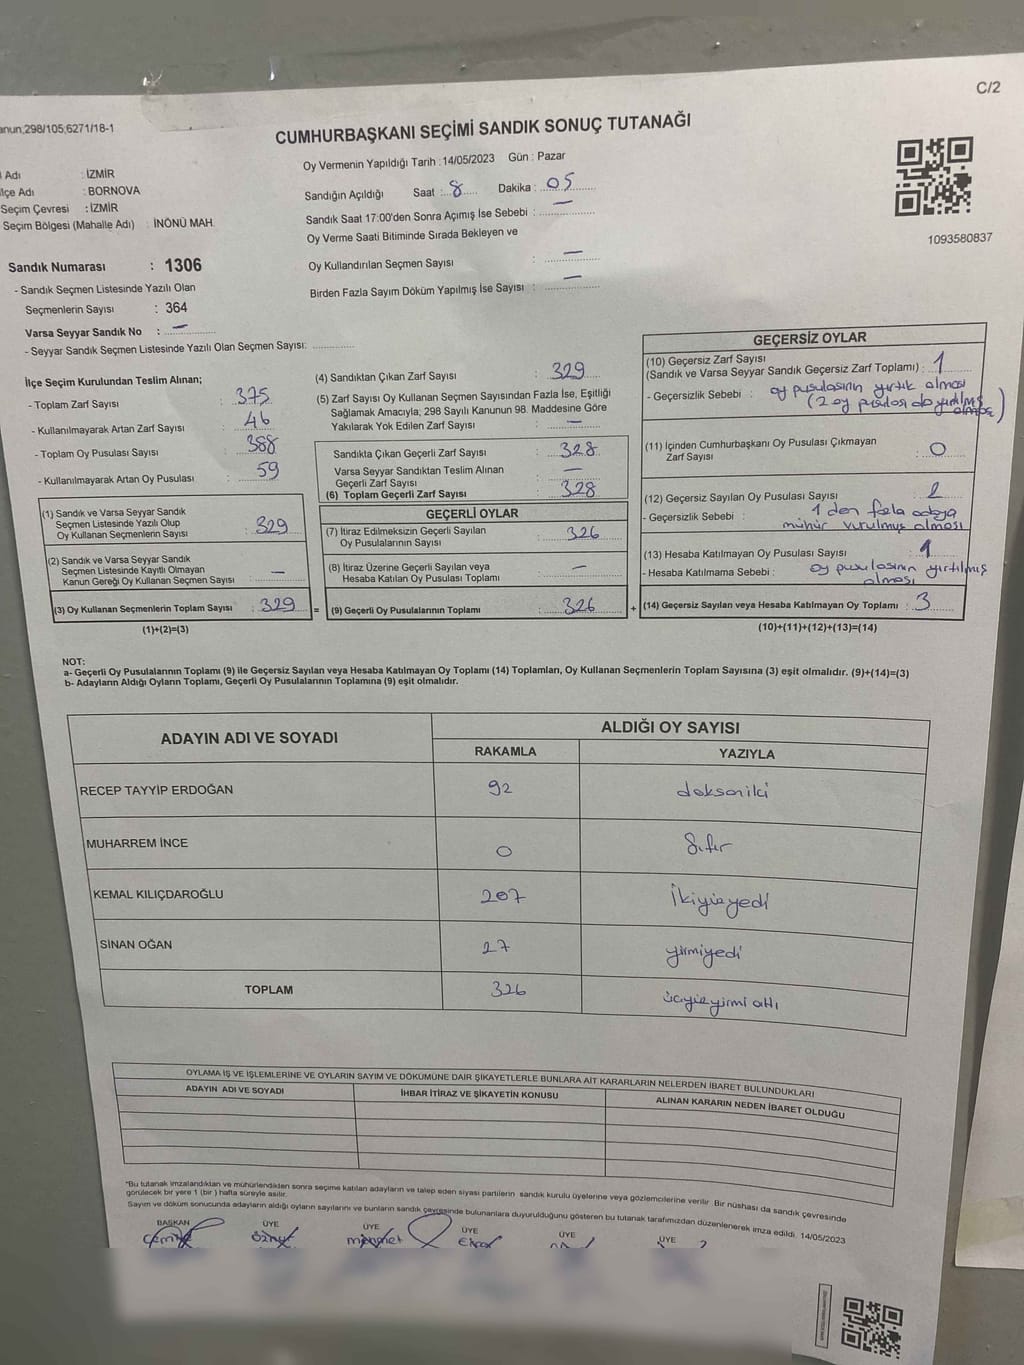 C/2
anun;298/105;6271/18-1
CUMHURBAŞKANI SEÇİMİ SANDIK SONUÇ TUTANAĞI
Adı : İZMİR
lçe Adı : BORNOVA
Seçim Çevresi : İZMİR
Seçim Bölgesi (Mahalle Adı) : İNÖNÜ MAH.
Sandık Numarası : 1306
- Sandık Seçmen Listesinde Yazılı Olan
Seçmenlerin Sayısı : 364
Varsa Seyyar Sandık No : —
- Seyyar Sandık Seçmen Listesinde Yazılı Olan Seçmen Sayısı:
Oy Vermenin Yapıldığı Tarih : 14/05/2023 Gün : Pazar
Sandığın Açıldığı Saat : 8 Dakika : 05
Sandık Saat 17:00'den Sonra Açımış İse Sebebi : —
Oy Verme Saati Bitiminde Sırada Bekleyen ve
Oy Kullandırılan Seçmen Sayısı : —
Birden Fazla Sayım Döküm Yapılmış İse Sayısı : —
1093580837
İlçe Seçim Kurulundan Teslim Alınan;
- Toplam Zarf Sayısı : 375
- Kullanılmayarak Artan Zarf Sayısı : 46
- Toplam Oy Pusulası Sayısı : 388
- Kullanılmayarak Artan Oy Pusulası : 59
(1) Sandık ve Varsa Seyyar Sandık
Seçmen Listesinde Yazılı Olup
Oy Kullanan Seçmenlerin Sayısı : 329
(2) Sandık ve Varsa Seyyar Sandık
Seçmen Listesinde Kayıtlı Olmayan
Kanun Gereği Oy Kullanan Seçmen Sayısı : —
(3) Oy Kullanan Seçmenlerin Toplam Sayısı : 329 =
(1)+(2)=(3)
(4) Sandıktan Çıkan Zarf Sayısı : 329
(5) Zarf Sayısı Oy Kullanan Seçmen Sayısından Fazla İse, Eşitliği
Sağlamak Amacıyla, 298 Sayılı Kanunun 98. Maddesine Göre
Yakılarak Yok Edilen Zarf Sayısı : —
Sandıkta Çıkan Geçerli Zarf Sayısı : 328
Varsa Seyyar Sandıktan Teslim Alınan
Geçerli Zarf Sayısı : —
(6) Toplam Geçerli Zarf Sayısı : 328
GEÇERLİ OYLAR
(7) İtiraz Edilmeksizin Geçerli Sayılan
Oy Pusulalarının Sayısı : 326
(8) İtiraz Üzerine Geçerli Sayılan veya
Hesaba Katılan Oy Pusulası Toplamı : —
(9) Geçerli Oy Pusulalarının Toplamı : 326 +
GEÇERSİZ OYLAR
(10) Geçersiz Zarf Sayısı
(Sandık ve Varsa Seyyar Sandık Geçersiz Zarf Toplamı) : 1
- Geçersizlik Sebebi : oy pusulasının yırtık olması
(2 oy pusulası da yırtılmış
olması)
(11) İçinden Cumhurbaşkanı Oy Pusulası Çıkmayan
Zarf Sayısı : 0
(12) Geçersiz Sayılan Oy Pusulası Sayısı
- Geçersizlik Sebebi : 1 den fazla adaya
mühür vurulmuş olması
(13) Hesaba Katılmayan Oy Pusulası Sayısı : 1
- Hesaba Katılmama Sebebi : oy pusulasının yırtılmış
olması
(14) Geçersiz Sayılan veya Hesaba Katılmayan Oy Toplamı : 3
(10)+(11)+(12)+(13)=(14)
NOT:
a- Geçerli Oy Pusulalarının Toplamı (9) ile Geçersiz Sayılan veya Hesaba Katılmayan Oy Toplamı (14) Toplamları, Oy Kullanan Seçmenlerin Toplam Sayısına (3) eşit olmalıdır. (9)+(14)=(3)
b- Adayların Aldığı Oyların Toplamı, Geçerli Oy Pusulalarının Toplamına (9) eşit olmalıdır.
ADAYIN ADI VE SOYADI ALDIĞI OY SAYISI
RAKAMLA YAZIYLA
RECEP TAYYİP ERDOĞAN 92 doksaniki
MUHARREM İNCE 0 Sıfır
KEMAL KILIÇDAROĞLU 207 İkiyüzyedi
SİNAN OĞAN 27 yirmiyedi
TOPLAM 326 üçyüzyirmi altı
OYLAMA İŞ VE İŞLEMLERİNE VE OYLARIN SAYIM VE DÖKÜMÜNE DAİR ŞİKAYETLERLE BUNLARA AİT KARARLARIN NELERDEN İBARET BULUNDUKLARI
ADAYIN ADI VE SOYADI İHBAR İTİRAZ VE ŞİKAYETİN KONUSU ALINAN KARARIN NEDEN İBARET OLDUĞU
*Bu tutanak imzalandıktan ve mühürlendikten sonra seçime katılan adayların ve talep eden siyasi partilerin sandık kurulu üyelerine veya gözlemcilerine verilir. Bir nüshası da sandık çevresinde
görülecek bir yere 1 (bir) hafta süreyle asılır.
Sayım ve döküm sonucunda adayların aldığı oyların sayılarını ve bunların sandık çevresinde bulunanlara duyurulduğunu gösteren bu tutanak tarafımızdan düzenlenerek imza edildi. 14/05/2023
BAŞKAN ÜYE ÜYE ÜYE ÜYE ÜYE